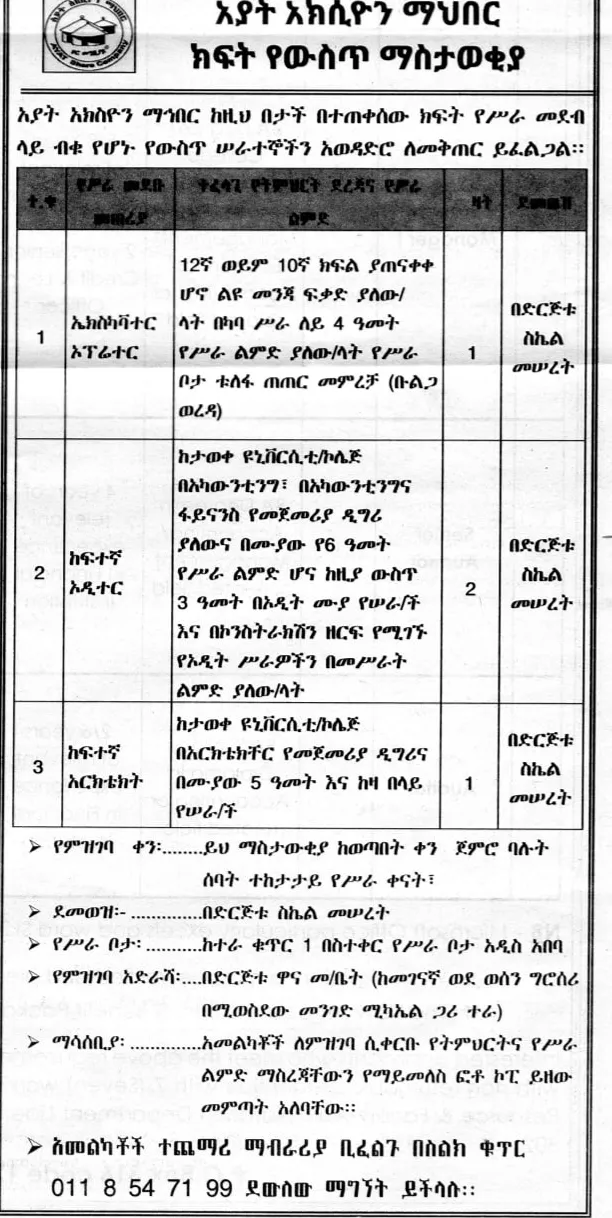 አያት አክሲዮን ማህበር
ክፍት የውስጥ ማስታወቂያ
AYAT Share Company
አያት አክስዮን ማኅበር ከዚህ በታች በተጠቀሰው ክፍት የሥራ መደብ
ላይ ብቁ የሆኑ የውስጥ ሠራተኞችን አወዳድሮ ለመቅጠር ይፈልጋል፡፡
ተ.ቁ የሥራ መደቡ መጠሪያ ተፈላጊ የትምህርት ደረጃና የሥራ ልምድ ብዛት ደመወዝ
1 ኤክስካቫተር ኦፕሬተር
12ኛ ወይም 10ኛ ክፍል ያጠናቀቀ
ሆኖ ልዩ መንጃ ፍቃድ ያለው/
ላት በካባ ሥራ ለይ 4 ዓመት
የሥራ ልምድ ያለው/ላት የሥራ
ቦታ ቱለፋ ጠጠር መምረቻ (ቡልጋ
ወረዳ)
1
በድርጅቱ ስኬል መሠረት
2 ከፍተኛ ኦዲተር
ከታወቀ ዩኒቨርሲቲ/ኮሌጅ
በአካውንቲንግ፣ በአካውንቲንግና
ፋይናንስ የመጀመሪያ ዲግሪ
ያለውና በሙያው የ6 ዓመት
የሥራ ልምድ ሆና ከዚያ ውስጥ
3 ዓመት በኦዲት ሙያ የሠራ/ች
እና በኮንስትራክሽን ዘርፍ የሚገኙ
የኦዲት ሥራዎችን በመሥራት
ልምድ ያለው/ላት
2
በድርጅቱ ስኬል መሠረት
3 ከፍተኛ አርክቴክት
ከታወቀ ዩኒቨርሲቲ/ኮሌጅ
በአርክቴክቸር የመጀመሪያ ዲግሪና
በሙያው 5 ዓመት እና ከዛ በላይ
የሠራ/ች
1
በድርጅቱ ስኬል መሠረት
➢ የምዝገባ ቀን፡........ይህ ማስታውቂያ ከወጣበት ቀን ጀምሮ ባሉት
ሰባት ተከታታይ የሥራ ቀናት፣
➢ ደመወዝ፡- ..............በድርጅቱ ስኬል መሠረት
➢ የሥራ ቦታ፡ ............ከተራ ቁጥር 1 በስተቀር የሥራ ቦታ አዲስ አበባ
➢ የምዝገባ አድራሻ፡...በድርጅቱ ዋና መ/ቤት (ከመገናኛ ወደ ወሰን ግሮሰሪ
በሚወስደው መንገድ ሚካኤል ጋሪ ተራ)
➢ ማሳሰቢያ፡ ..............አመልካቾች ለምዝገባ ሲቀርቡ የትምህርትና የሥራ
ልምድ ማስረጃቸውን የማይመለስ ፎቶ ኮፒ ይዘው
መምጣት አለባቸው፡፡
➢ ስመልካቾች ተጨማሪ ማብራሪያ ቢፈልጉ በስልክ ቁጥር
011 8 54 71 99 ደውሰው ማግኘት ይችላሉ፡፡